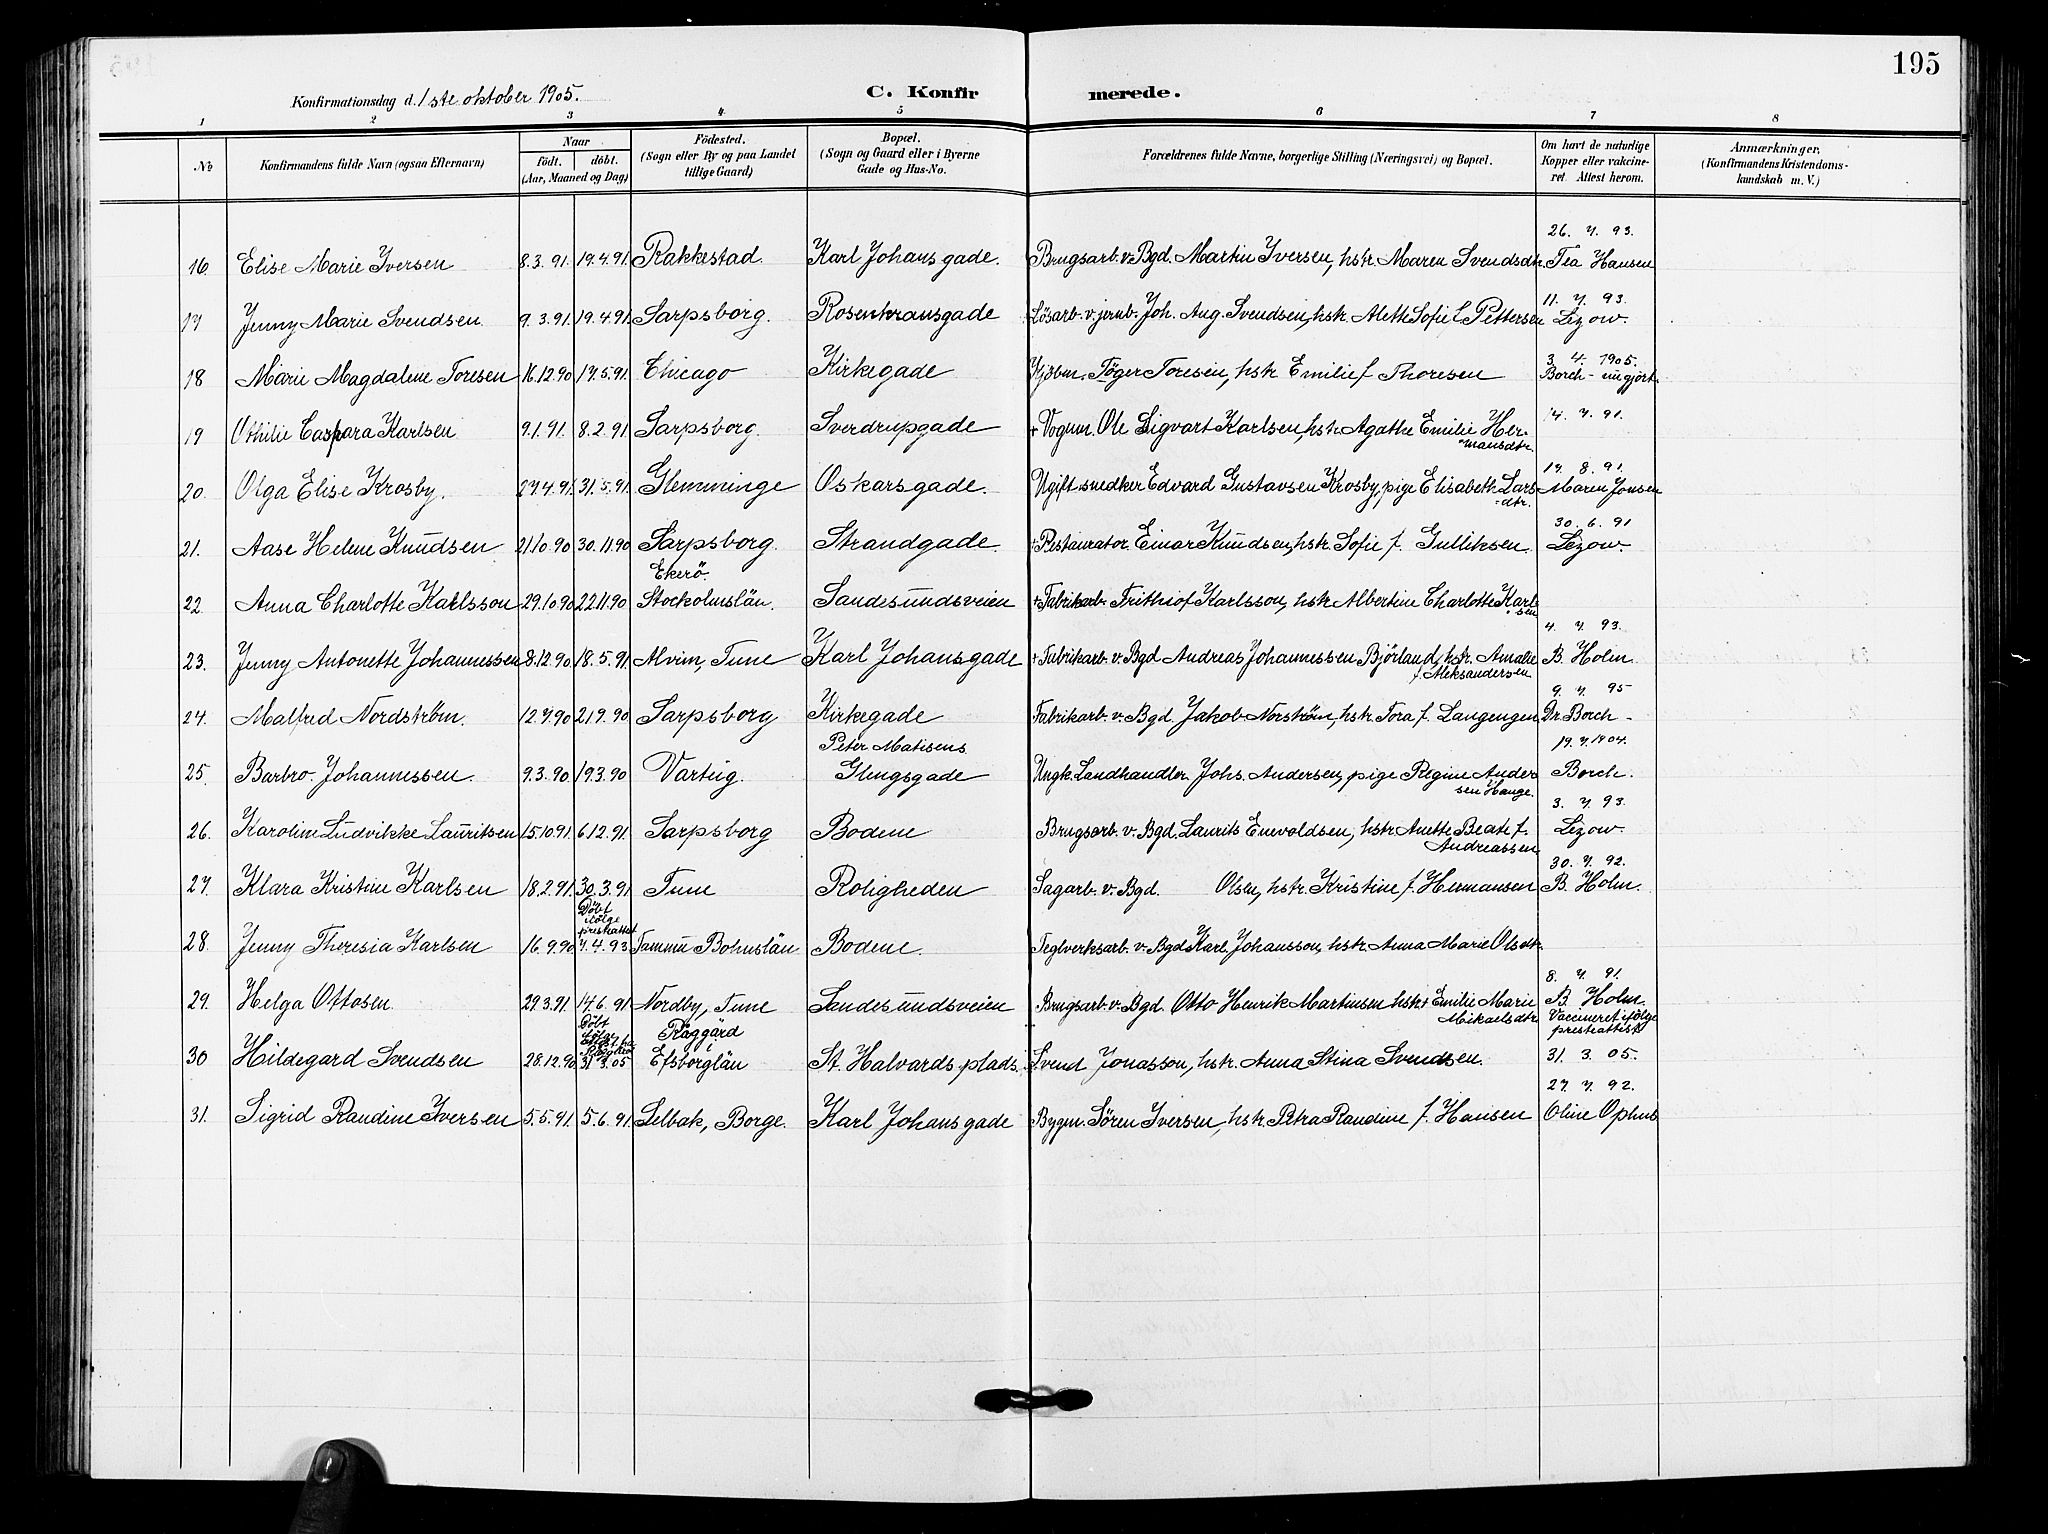 195
Konfirmationsdag d. 1ste oktober 1905. C. Konfirmerede.
1 2 3 4 5 6 7 8
No Konfirmandens fulde Navn (ogsaa Efternavn) Naar födt. döbt. (Aar, Maaned og Dag) Födested. (Sogn eller By og paa Landet tillige Gaard) Bopæl. (Sogn og Gaard eller i Byerne Gade og Hus-No. Forældrenes fulde Navne, borgerlige Stilling (Næringsvei) og Bopæl. Om havt de naturlige Kopper eller vakcineret Attest herom. Anmærkninger, (Konfirmandens Kristendomskundskab m. V.)
16. Elise Marie Iversen 8.3.91. 19.4.91. Rakkestad. Karl Johansgade. Brugsarb. v. Bgd. Martin Iversen, hstr. Maren Svendsdtr. 26. 7. 93. Téa Hansen
17 Jenny Marie Svendsen. 9.3.91. 19.4.91. Sarpsborg. Rosenkransgade Lösarb. v. jernb. Joh. Aug. Svendsen, hstr. Alette Sofie f. Pettersen 11. 7. 93. Lezow.
18 Marie Magdalene Toresen 16.12.90 17.5.91. Chicago Kirkegade Kjøbm. Töger Toresen, hstr. Emilie f. Thoresen 3. 4. 1905. Borch - umgjort.
19 Othilie Caspara Karlsen 9.1.91. 8.2.91 Sarpsborg. Sverdrupgade + Vognm. Ole Sigvart Karlsen, hstr. Agathe Emilie Hermansdtr. 14. 7. 91.
20. Olga Elise Krosby. 27.4.91. 31.5.91. Glemminge Oskarsgade. Ugift snedker Edvard Gustavsen Krosby, pige Elisabeth Larsdtr. 17. 8. 91. Maren Jonsen
21. Aase Helene Knudsen 21.10.90 30.11.90 Sarpsborg. Strandgade. + Restauratør Einar Knudsen, hstr. Sofie f. Gulliksen. 30. 6. 91 Lezow.
22 Anna Charlotte Karlsson 29.10.90 22.11.90 Ekerö. Stockolmslän. Sandesundsveien + Fabrikarb. Frithiof Karlsson, hstr. Albertine Charlotte Karlsen
23. Jenny Antonette Johannessen 8.12.90 18.5.91. Alvim, Tune Karl Johansgade + Fabrikarb. v. Bgd Andreas Johannessen Björland, hstr. Amalie f. Aleksandersen 4. 7. 93. B. Holm.
24. Malfred Nordström. 12.7.90 21.9.90 Sarpsborg Kirkegade Fabrikarb. v. Bgd. Jakob Norström, hstr. Tora f. Langengen 9. 7. 95 Dr. Borch -
25. Barbro Johannessen 9.3.90 19.3.90 Varteig. Peter Matisens Glengsgade Ungk. Landhandler Johs. Andersen, pige Regine Andersen Hauge. 19. 7. 1904. Borch.
26. Karoline Ludvikke Lauritsen 15.10.91 6.12.91. Sarpsborg Bodene Brugsarb. v. Bgd. Laurits Enevoldsen, hstr. Anette Beate f. Andreassen 3. 7. 93. Lezow.
27. Klara Kristine Karlsen 18.2.91 30.3.91 Tune Roligheden Sagarb. v. Bgd. Olsen, hstr. Kristine f. Hermansen 30. 7. 92. B. Holm.
28. Jenny Theresia Karlsen 16.9.90 Döbt ifølge prestattest 7.4.93 Tammu Bohuslän Bodene. Teglverksarb. v. Bgd Karl Johansson, hstr. Anna Marie Olsdtr.
29. Helga Ottosen. 29.3.91. 14.6.91 Nordby, Tune Sandesundsveien Brugsarb. v. Bgd. Otto Henrik Martinsen hstr + Emilie Marie Mikaelsdtr. 8. 7. 91. B. Holm.
30 Hildegard Svendsen 28.12.90 Döbt 31.3.05 Råggärd i Efsborglän St. Halvards plads. Svend Jonasson, hstr. Anna Stina Svendsen. Vaccineret ifølge prestattest 31. 3. 05.
31. Sigrid Randine Iversen 5.5.91. 5.6.91. Selbak, Borge. Karl Johansgade Bygm. Sören Iversen, hstr. Petra Randine f. Hansen 27. 7. 92. Oline Ophus